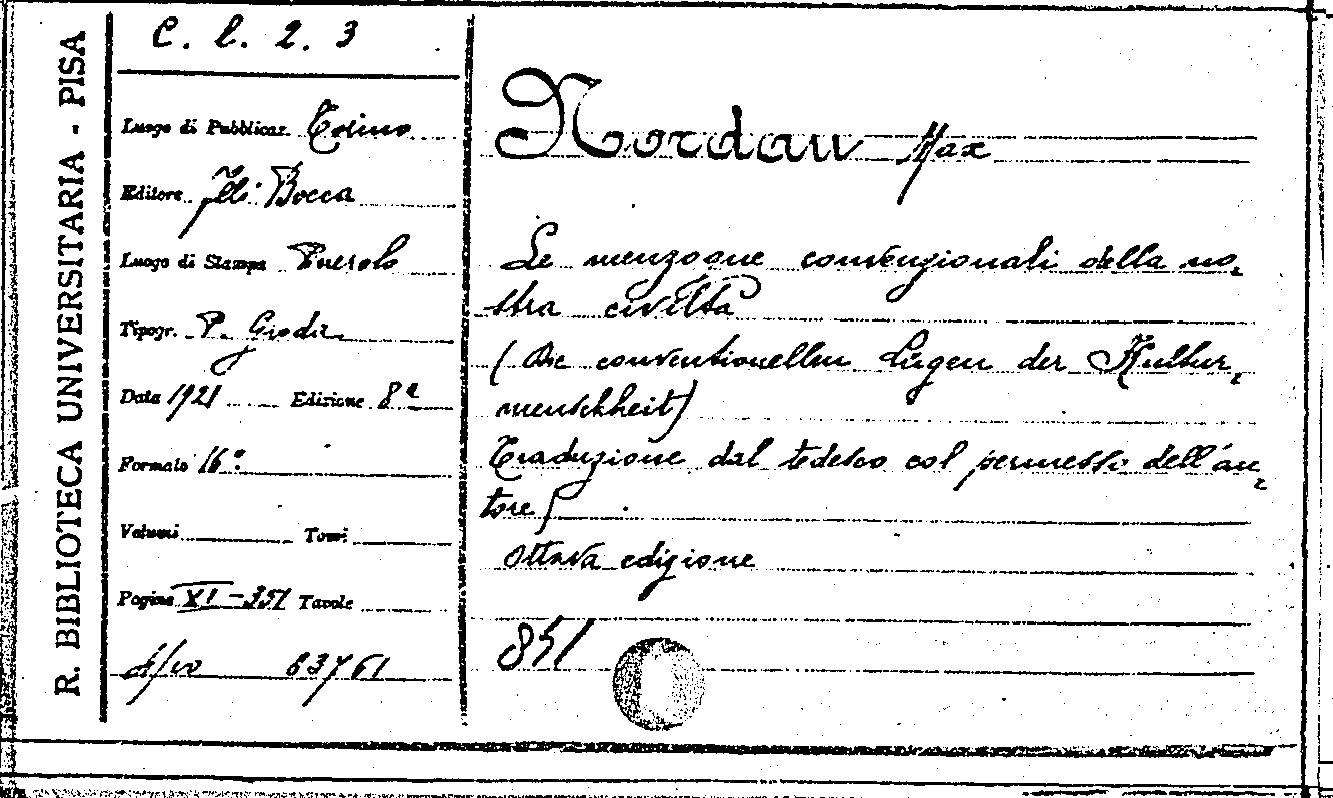 R. BIBLIOTECA UNIVERSITARIA - PISA
C. l. 2. 3
Luogo di Pubblicaz. Torino
Editore Flli Bocca
Luogo di Stampa
Tipogr. P.
Data 1921 Edizione 8a
Formato 16º
Volumi Tomi
Pagine XI-351 Tavole
63761
Nordau Max
Le menzogne convenzionali della no-
stra civiltà
(Die conventionellen Lügen der Kultur-
menschheit)
Traduzione dal tedesco col permesso dell'au-
tore
Ottava edizione
851